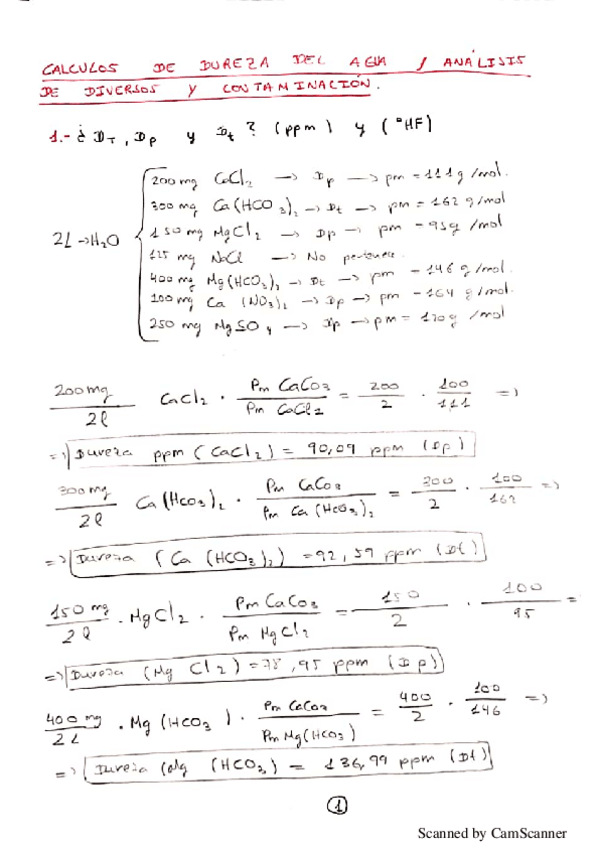 CALCULOS DE DUREZA DEL AGUA / ANÁLISIS
DE DIVERSOS Y CONTAMINACIÓN.
1.- ¿ DT, Dp y Dt ? (ppm) y (°HF)
200 mg CaCl2 → Dp → pm = 111 g/mol.
300 mg Ca(HCO3)2 → Dt → pm = 162 g/mol
2L → H2O 150 mg MgCl2 → Dp → pm = 95g/mol
125 mg NaCl → No pertenece.
400 mg Mg(HCO3)2 → Dt → pm = 146 g/mol.
100 mg Ca (NO3)2 → Dp → pm = 164 g/mol.
250 mg MgSO4 → Dp → pm = 120g/mol
200mg/2l CaCl2 · Pm CaCO3/Pm CaCl2 = 200/2 · 100/111 =>
=> Dureza ppm (CaCl2) = 90,09 ppm (Dp)
300mg/2l Ca(HCO3)2 · Pm CaCO3/Pm Ca(HCO3)2 = 300/2 · 100/162 =>
=> Dureza (Ca (HCO3)2) = 92,59 ppm (Dt)
150 mg/2l · MgCl2 · Pm CaCO3/Pm MgCl2 = 150/2 · 100/95 =
=> Dureza (Mg Cl2) = 78,95 ppm (Dp)
400 mg/2L · Mg (HCO3) · Pm CaCO3/Pm Mg(HCO3) = 400/2 · 100/146 =>
=> Dureza (Mg (HCO3) = 136,99 ppm (Dt)
1
Scanned by CamScanner